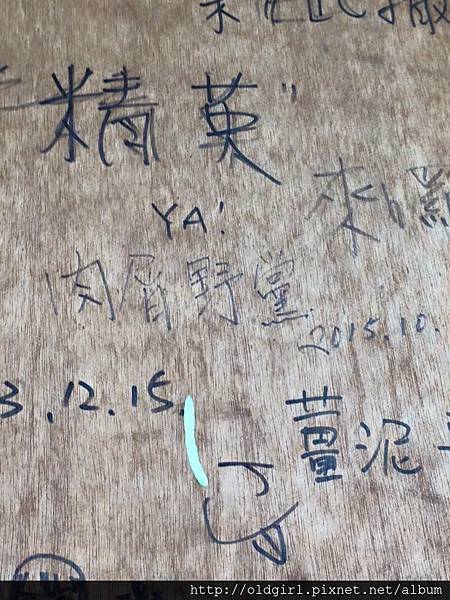 精英"
YA!
來
肉屑野黨
2015.10.
3.12.15.
薑泥
http://oldgirl.pixnet.net/album